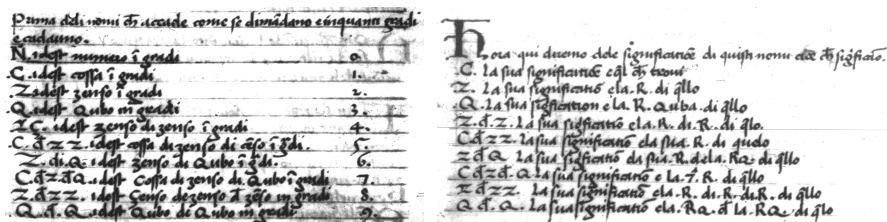 Prima deli nomi ch accade come se dimãdano e inquanti gradi
e cadauno.
N. idest numero ĩ gradi 0.
.C. idest cossa ĩ gradi 1.
Z. idest zenso ĩ gradi 2.
.Q. idest Qubo in gradi 3.
ZC. idest zenso di zenso ĩ gradi 4.
C đ z z. idest cossa di zenso di cẽso ĩ g̃di. 5.
Z. di. Q. idest zenso di Qubo ĩ g̃di. 6.
C đ z đ Q. idest Cossa di zenso di Qubo ĩ gradi 7
Z đ z z. idest Censo de zenso đ zẽso in gradi 8.
Q. đ. Q. idest Qubo di Qubo in gradi 9.
Hora qui diremo dele significatiõe di quisti nomi ch sigficano.
.C. la sua significatiõe
Z. la sua significatiõ e la .R. di q̃llo
.Q. la sua sigfication e la .R. Quba. di q̃llo
Z. đ. z. la sua sigficatiõ e la .R. di .R. di q̃lo.
C đ z z. la sua significatiõ e la sua .R. di quelo
Z đ Q. la sua sigficatiõ e la sua .R. dela .RQ. di q̃llo
C đ z đ .Q la sua significatiõ e la .R. di q̃llo
Z đ z z. la sua significatiõ e la .R. di .R. di .R. di q̃llo
Q. đ .Q. la sua significatiõ e la .RQ. đ la .RQ. di q̃lo